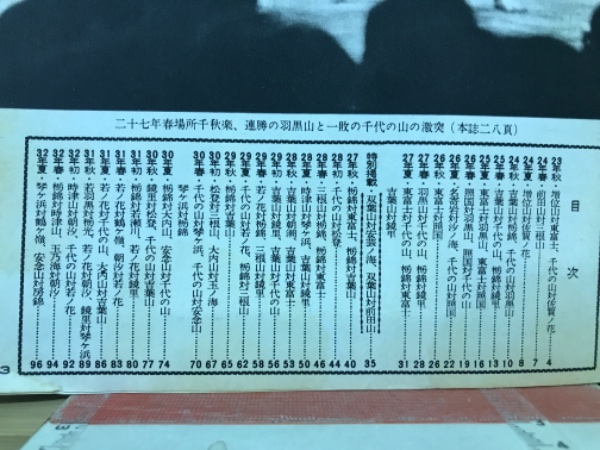 二十七年春場所千秋楽、連勝の羽黒山と一敗の千代の山の激突(本誌二八頁)
目次
23年秋・増位山対東富士、増位山対佐賀ノ花 4
24年春・前田山対三根山 7
24年夏・増位山対佐賀ノ花 8
24年秋・吉葉山対栃錦、千代の山対羽黒山 10
25年春・吉葉山対千代の山 13
25年夏・東富士対羽黒山、東富士対照国 16
照国対羽黒山、照国対千代の山 19
26年夏・名寄岩対汐ノ海、千代の山対照国 22
26年秋・東富士対照国 26
27年春・羽黒山対千代の山、栃錦対鏡里 28
27年夏・東富士対千代の山、栃錦対東富士
吉葉山対鏡里 31
特別掲載・双葉山対安芸ノ海、双葉山対前田山 35
27年秋・栃錦対東富士、栃錦対吉葉山 40
28年初・千代の山対松登 44
28年春・三根山対栃錦、栃錦対東富士 46
28年夏・時津山対琴ヶ浜、吉葉山対鏡里 50
28年秋・吉葉山対朝潮、吉葉山対東富士 53
29年初・吉葉山対鏡里、吉葉山対千代の山 56
29年春・若ノ花対栃錦、三根山対鏡里 58
29年夏・千代の山対若ノ花、栃錦対三根山 62
29年秋・栃錦対吉葉山 65
千代の山対時津山 67
30年春・千代の山対琴ヶ浜、千代の山対安念山
琴ヶ浜対栃錦 70
30年夏・栃錦対大内山、安念山対千代の山 74
30年秋・鏡里対松登、千代の山対吉葉山 77
31年初・栃錦対若瀬川、若ノ花対鏡里 80
31年春・若ノ花対鶴ヶ嶺、朝汐対若ノ花 83
31年夏・若ノ花対千代の山、大内山対吉葉山 86
31年秋・若羽黒対栃光、若ノ花対朝汐、鏡里対琴ヶ浜 89
32年初・時津山対朝汐、千代の山対若ノ花 92
32年春・栃錦対時津山、玉乃海対朝汐 94
32年夏・琴ヶ浜対鶴ヶ嶺、安念山対房錦 96
3